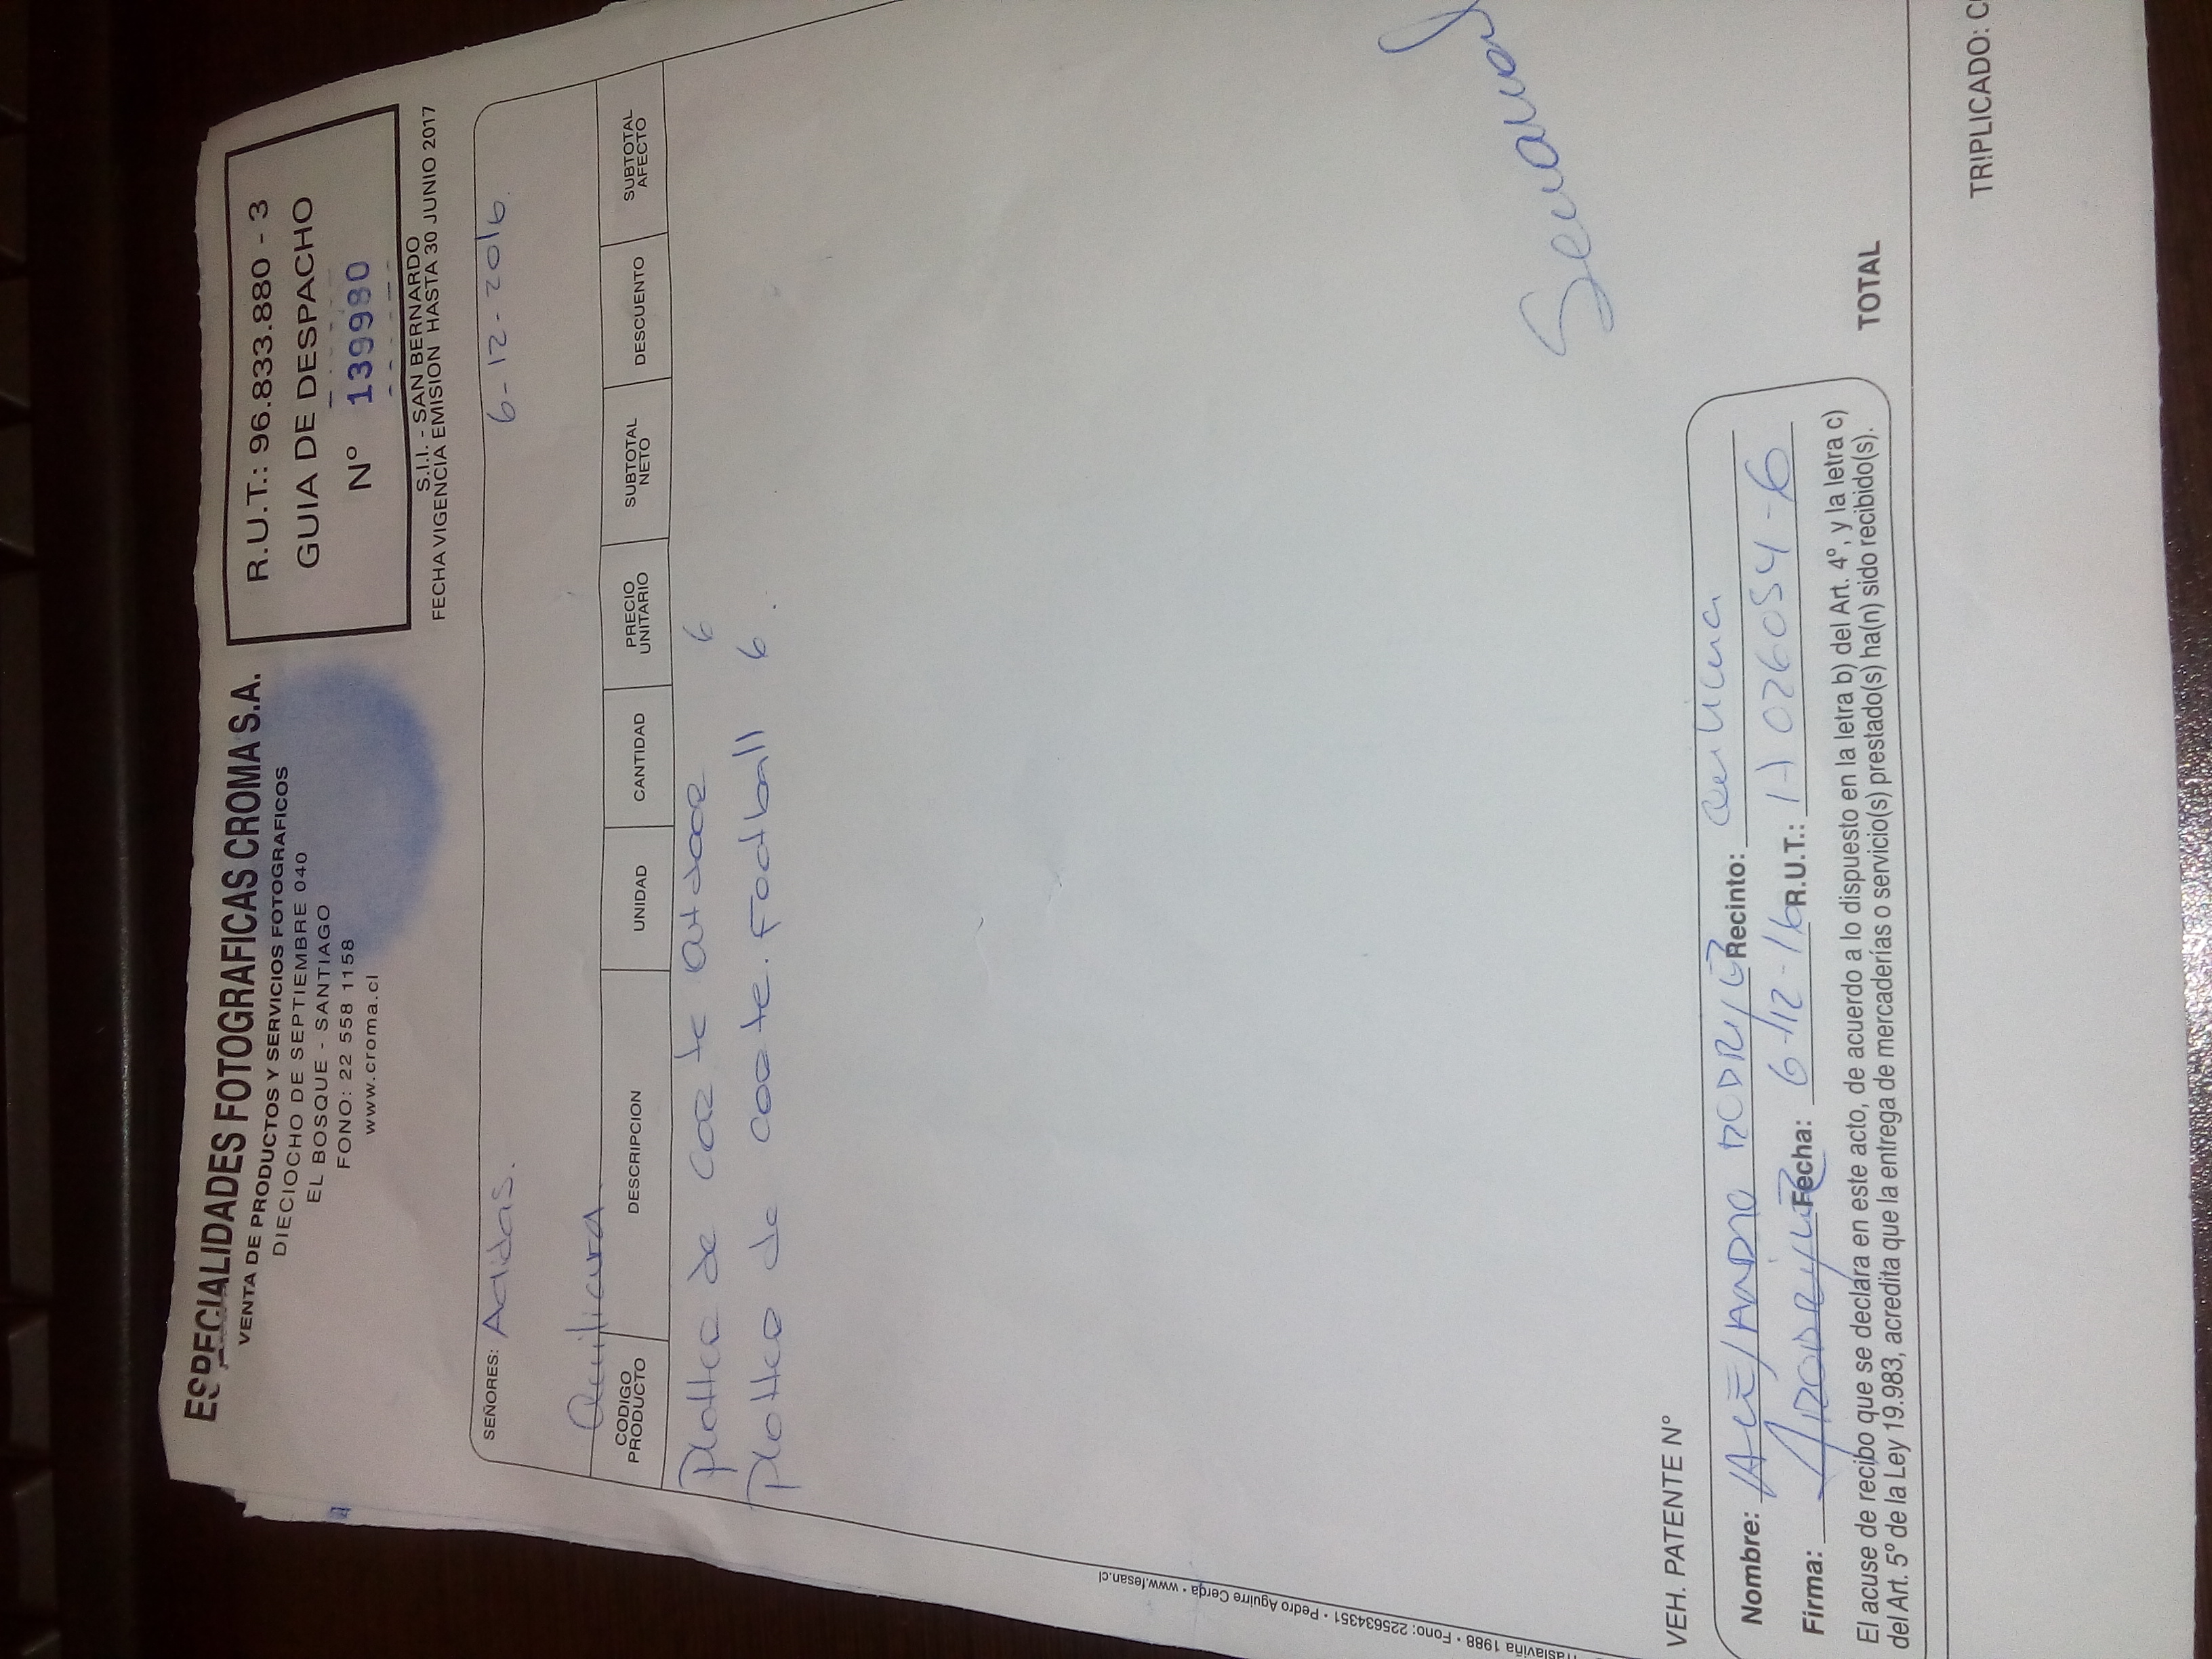 ESPECIALIDADES FOTOGRAFICAS CROMA S.A.
VENTA DE PRODUCTOS Y SERVICIOS FOTOGRAFICOS
DIECIOCHO DE SEPTIEMBRE 040
EL BOSQUE - SANTIAGO
FONO: 22 558 1158
www.croma.cl
R.U.T.: 96.833.880 - 3
GUIA DE DESPACHO
Nº 139980
S.I.I. - SAN BERNARDO
FECHA VIGENCIA EMISION HASTA 30 JUNIO 2017
SEÑORES: Adidas. 6-12-2016
Quilicura
CODIGO PRODUCTO DESCRIPCION UNIDAD CANTIDAD PRECIO UNITARIO SUBTOTAL NETO DESCUENTO SUBTOTAL AFECTO
Plotter de corte outdoor 6
Plotter de corte. Football 6.
Traslaviña 1988 • Fono: 225634351 • Pedro Aguirre Cerda • www.fesan.cl
Semanal
VEH. PATENTE Nº
Nombre: ALEJANDRO RODRIGUEZ Recinto: Quilicura
Firma: ARODRIGUEZ Fecha: 6-12-16 R.U.T.: 17026054-6
El acuse de recibo que se declara en este acto, de acuerdo a lo dispuesto en la letra b) del Art. 4º, y la letra c)
del Art. 5º de la Ley 19.983, acredita que la entrega de mercaderías o servicio(s) prestado(s) ha(n) sido recibido(s).
TOTAL
TRIPLICADO: